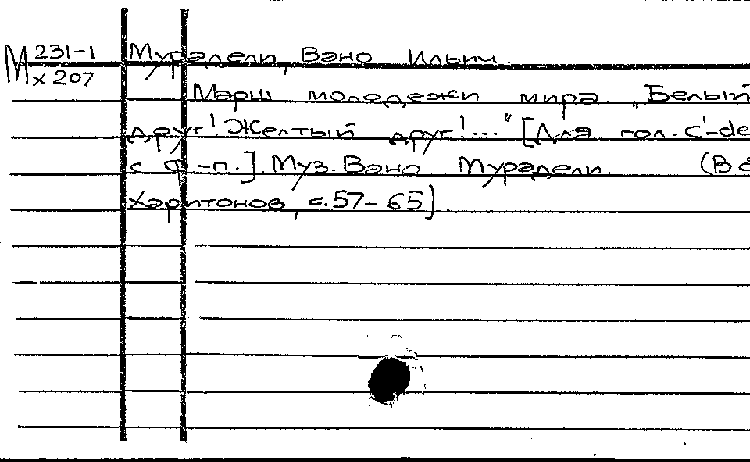 М 231-1
х 207
Мурадели, Вано Ильич.
Марш молодежи мира. „Белый
друг! Желтый друг!..." [Для гол. c'-de
с ф.-п.]. Муз. Вано Мурадели. (В
Харитонов, с. 57-65].